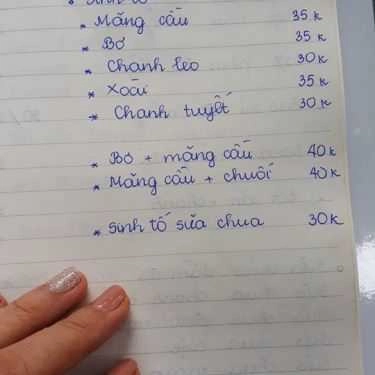 Sinh tố
* Mãng cầu 35 k
* Bơ 35 k
* Chanh leo 30k
* Xoài 35k
* Chanh tuyết 30 k
* Bơ + mãng cầu 40k
* Mãng cầu + chuối 40 k
* Sinh tố sữa chua 30k